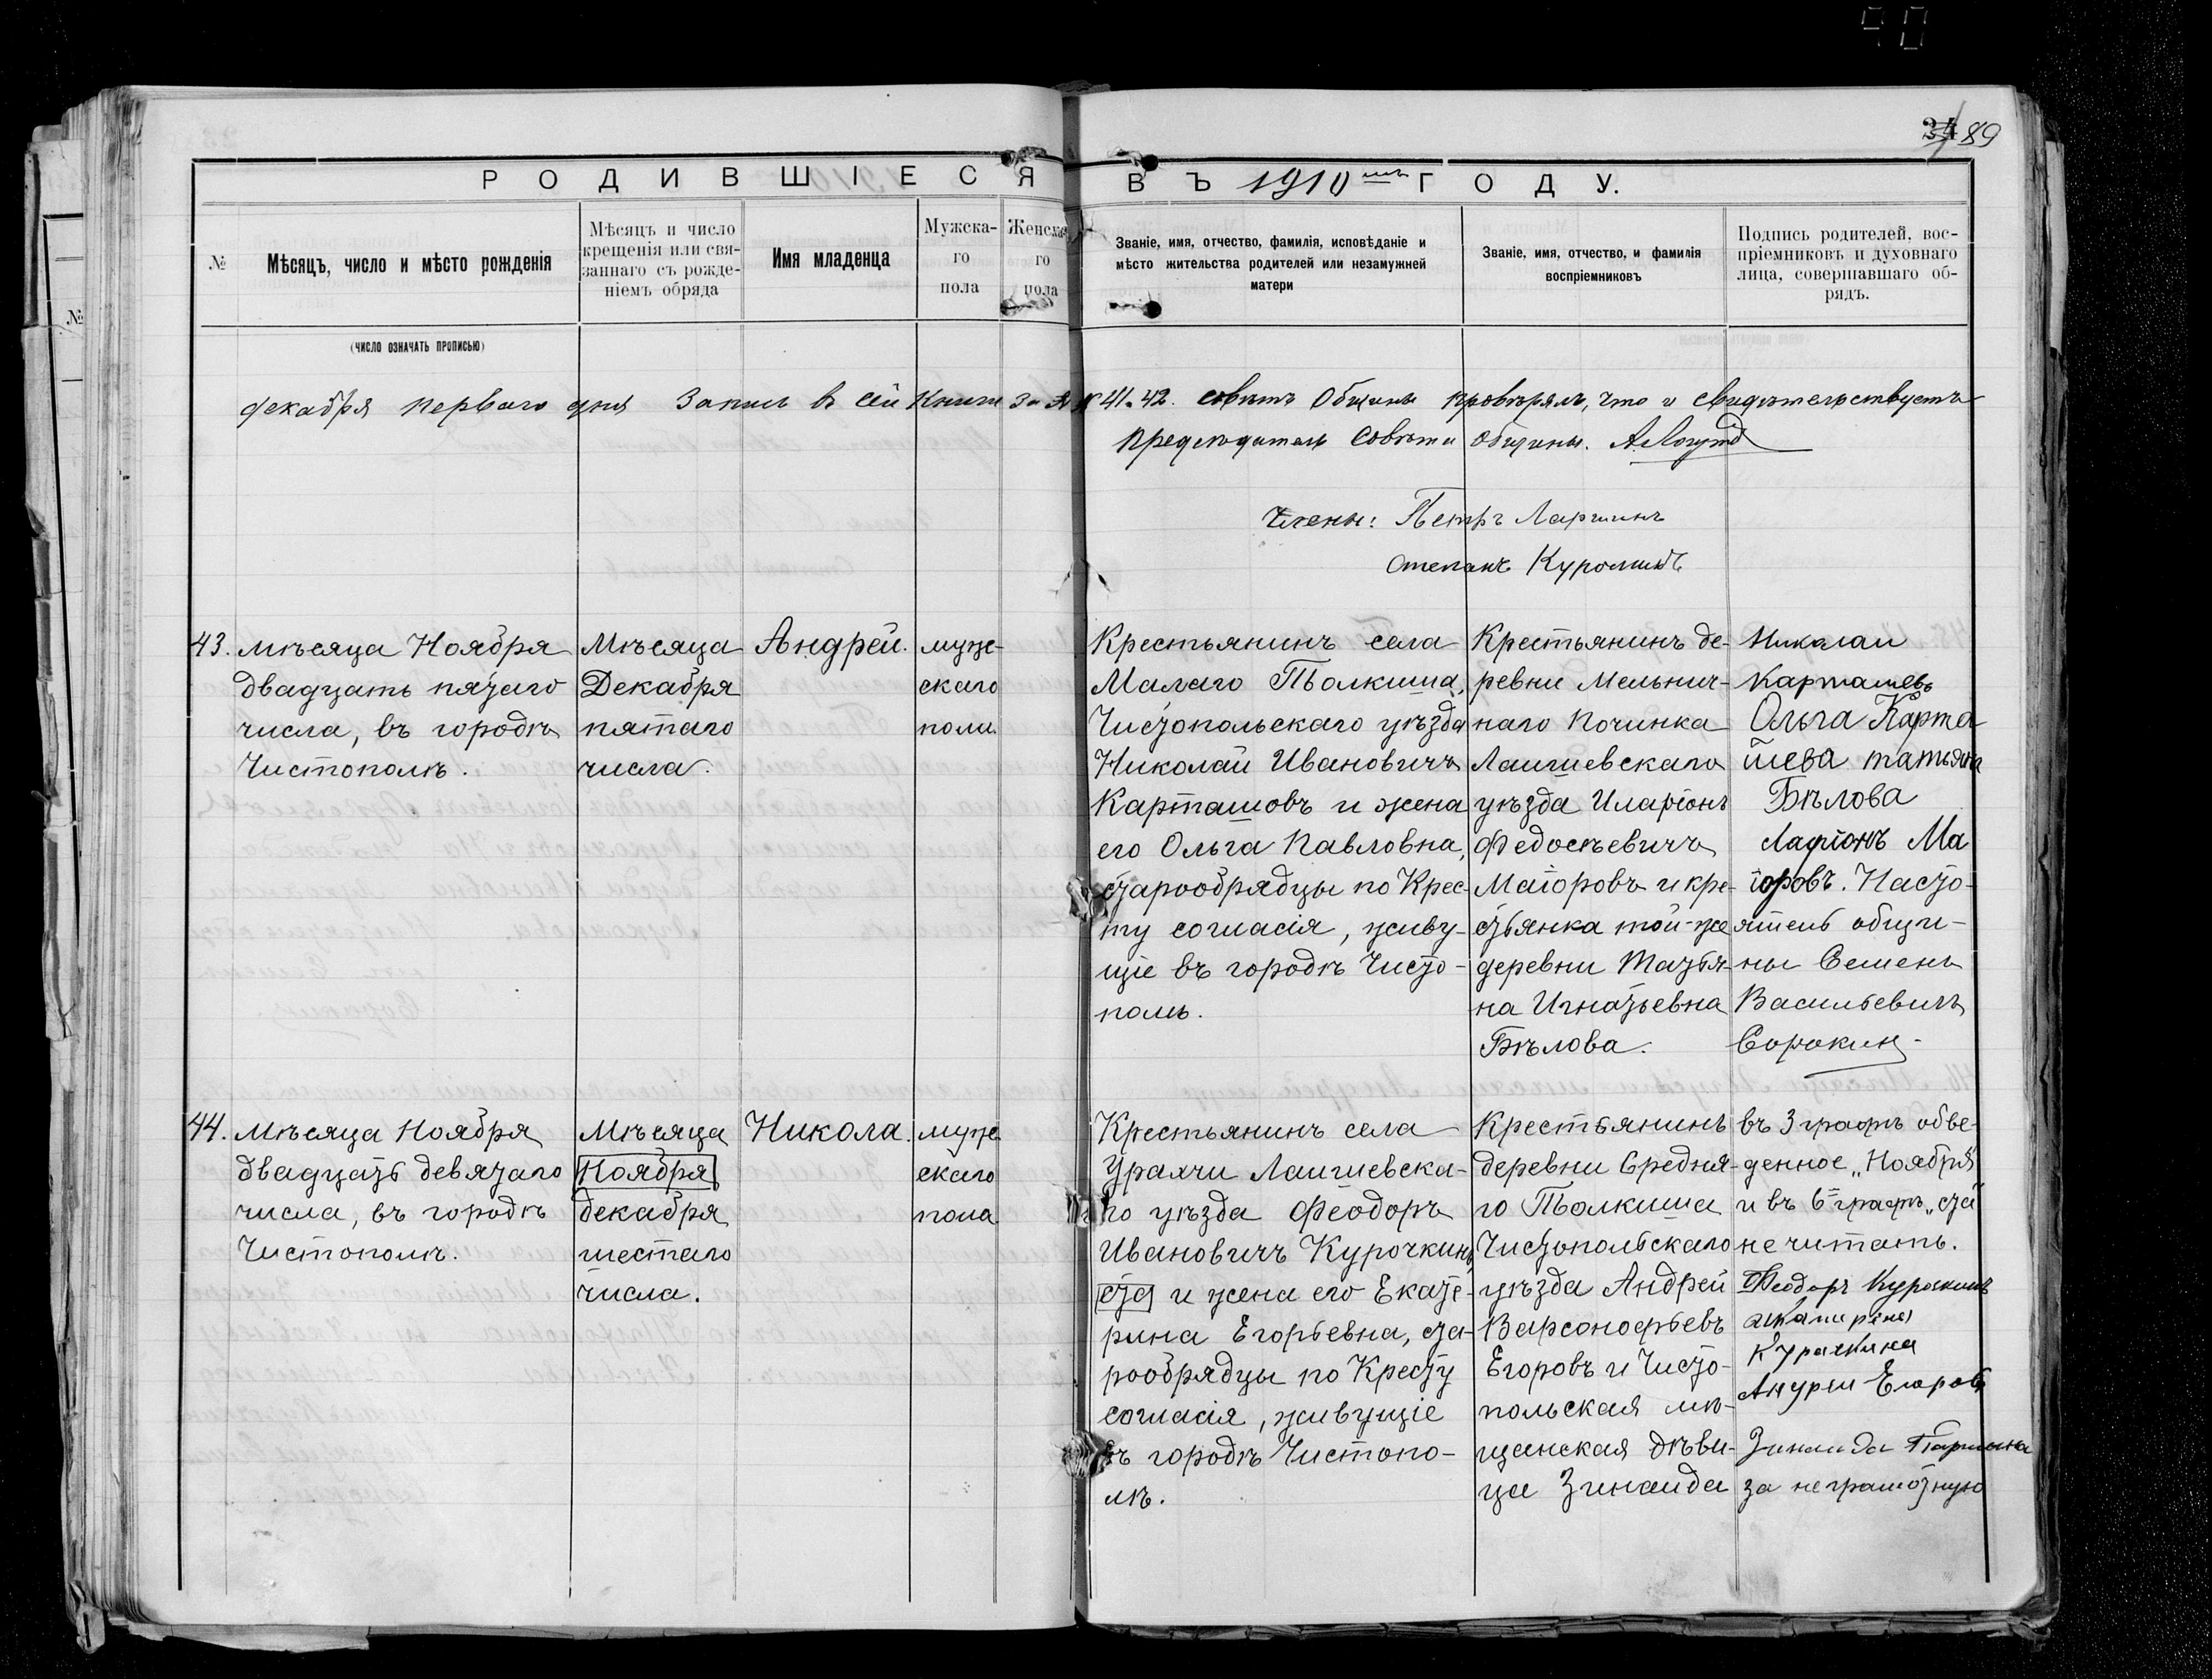 34 89
РОДИВШІЕСЯ ВЪ 1910мъ ГОДУ.
№
Мѣсяцъ, число и мѣсто рожденія
Мѣсяцъ и число
крещенія или свя-
заннаго съ рожде-
ніемъ обряда
Имя младенца
Мужска-
го
пола
Женска-
го
пола
Званіе, имя, отчество, фамилія, исповѣданіе и
мѣсто жительства родителей или незамужней
матери
Званіе, имя, отчество, и фамилія
воспріемниковъ
Подпись родителей, вос-
пріемниковъ и духовнаго
лица, совершавшаго об-
рядъ.
(число означать прописью)
№
декабря перваго дня Запись в сей книги за № 41. 42. советъ Общины провѣрялъ, что и свидѣтельствуетъ
Председатель Совѣта общины.
Члены: Петръ Ларшинъ
Степанъ
43.
мѣсяца Ноября
двадцать пятаго
числа, въ городѣ
Чистополѣ.
Мѣсяца
Декабря
пятаго
числа.
Андрей.
муже-
скаго
пола.
Крестьянинъ села
Малаго Толкиша,
Чистопольскаго уѣзда
Николай Ивановичъ
Карташовъ и жена
его Ольга Павловна,
старообрядцы по Крес-
ту согласія, живу-
щіе въ городѣ Чисто-
полѣ.
Крестьянинъ де-
ревни Мельнич-
наго Починка
Лаишевскаго
уѣзда Иларіонъ
Федосѣевичъ
Маіоровъ и кре-
стьянка той-же
деревни Татья-
на Игнатьевна
Бѣлова.
Николаи
Карташевъ
Ольга Карта
шева татьяна
Бѣлова
Ларіонъ Ма
іоровъ. Насто-
ятель общи-
ны Семенъ
Васильевичъ
Сорокинъ
44.
Мѣсяца Ноября
двадцать девятаго
числа, въ городѣ
Чистополѣ.
Мѣсяца
Ноября
декабря
шестаго
числа.
Никола.
муже
скаго
пола
Крестьянинъ села
Урахчи Лаишевска-
го уѣзда Феодоръ
Ивановичъ Курочкинъ
ста и жена его Екате-
рина Егорьевна, ста-
рообрядцы по Кресту
согласія, живущіе
въ городѣ Чистопо-
лѣ.
Крестьянинъ
деревни Средня-
го Толкиша
Чистопольскаго
уѣзда Андрей
Варсонофьевъ
Егоровъ и Чисто-
польская мѣ-
щанская дѣви-
ца Зинаида
въ 3 графѣ обве-
денное „Ноября"
и въ 6й графѣ „ста"
не читать.
Феодоръ Курочкинъ
Курачкина
Андреи Егоровъ
Зинаида Паршина
за неграмотную